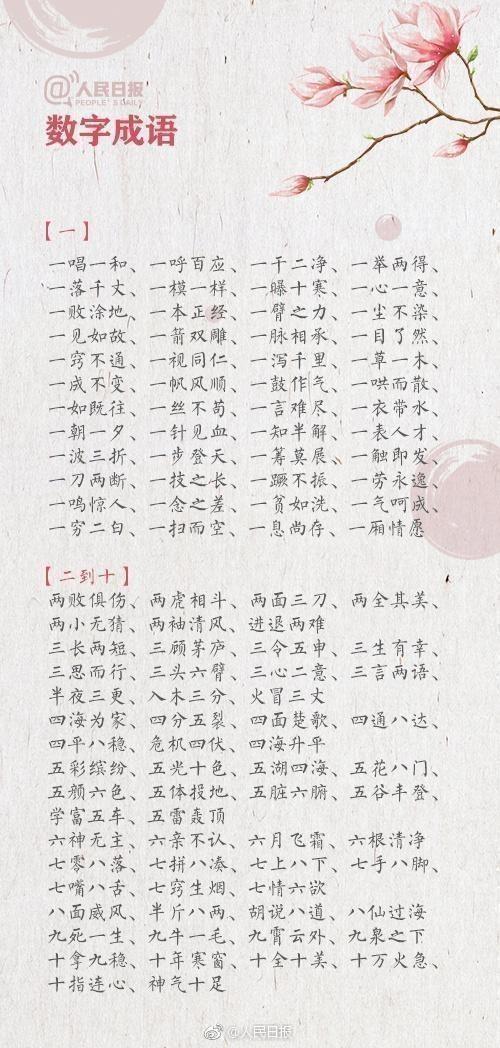 @人民日报
PEOPLE'S DAILY
数字成语
【一】
一唱一和、一呼百应、一干二净、一举两得、
一落千丈、一模一样、一曝十寒、一心一意、
一败涂地、一本正经、一臂之力、一尘不染、
一见如故、一箭双雕、一脉相承、一目了然、
一窍不通、一视同仁、一泻千里、一草一木、
一成不变、一帆风顺、一鼓作气、一哄而散、
一如既往、一丝不苟、一言难尽、一衣带水、
一朝一夕、一针见血、一知半解、一表人才、
一波三折、一步登天、一筹莫展、一触即发、
一刀两断、一技之长、一蹶不振、一劳永逸、
一鸣惊人、一念之差、一贫如洗、一气呵成、
一穷二白、一扫而空、一息尚存、一厢情愿
【二到十】
两败俱伤、两虎相斗、两面三刀、两全其美、
两小无猜、两袖清风、进退两难
三长两短、三顾茅庐、三令五申、三生有幸、
三思而行、三头六臂、三心二意、三言两语、
半夜三更、入木三分、火冒三丈
四海为家、四分五裂、四面楚歌、四通八达、
四平八稳、危机四伏、四海升平
五彩缤纷、五光十色、五湖四海、五花八门、
五颜六色、五体投地、五脏六腑、五谷丰登、
学富五车、五雷轰顶
六神无主、六亲不认、六月飞霜、六根清净
七零八落、七拼八凑、七上八下、七手八脚、
七嘴八舌、七窍生烟、七情六欲
八面威风、半斤八两、胡说八道、八仙过海
九死一生、九牛一毛、九霄云外、九泉之下
十拿九稳、十年寒窗、十全十美、十万火急、
十指连心、神气十足
@人民日报